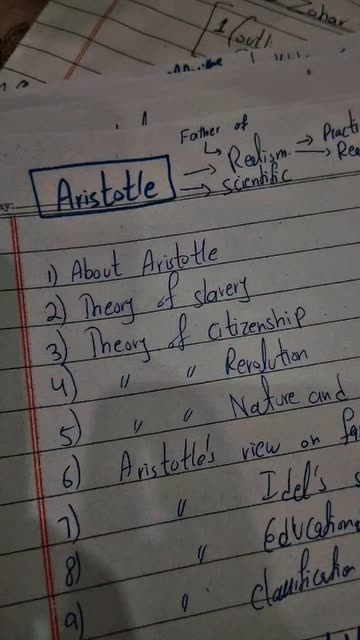 Zohar
Father of
Aristotle → Realism. → Practi
→ Scientific → Rea
1) About Aristotle
2) Theory of slavery
3) Theory of citizenship
4) " " Revolution
5) " " Nature and
6) Aristotle's view on
7) " Idel's
8) " Educationa
9) " Classification